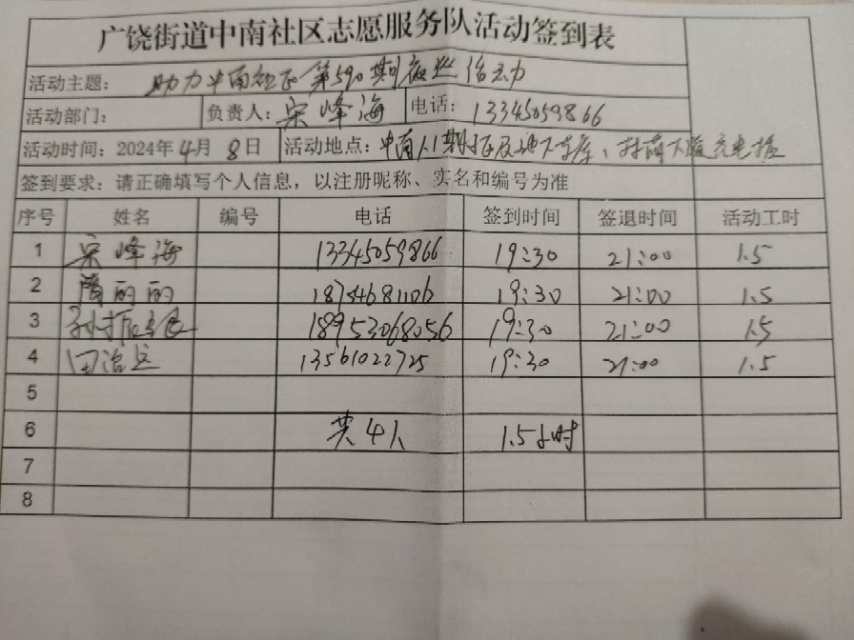 广饶街道中南社区志愿服务队活动签到表
活动主题： 助力中南社区第590期夜巡治安力
活动部门： 负责人：宋峰海 电话：13345059866
活动时间：2024年4月8日 活动地点：中南 1期 地下车库、 充电桩
签到要求：请正确填写个人信息，以注册昵称、实名和编号为准
序号 姓名 编号 电话 签到时间 签退时间 活动工时
1 宋峰海 13345059866 19:30 21:00 1.5
2 丽丽 18754681106 19:30 21:00 1.5
3 孙振 18953068056 19:30 21:00 1.5
4 田治 13561022725 19:30 21:00 1.5
5
6 共4人 1.5小时
7
8